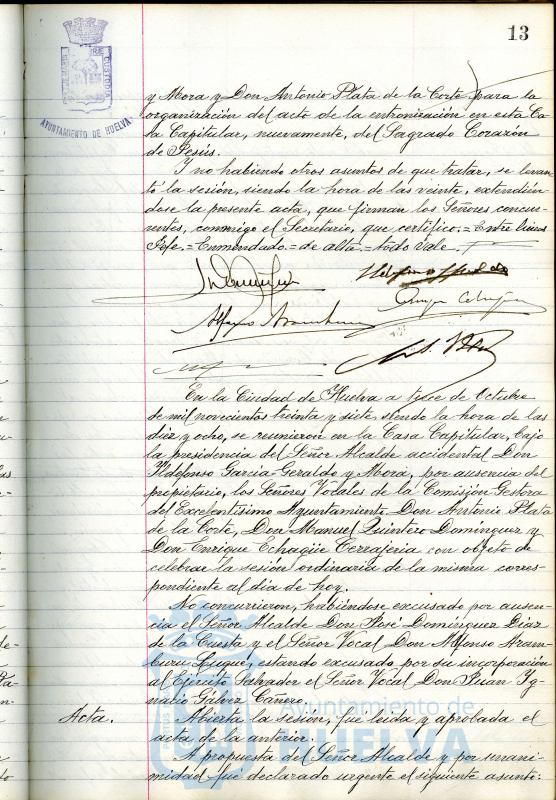 13
AYUNTAMIENTO DE HUELVA
y Mora y Don Antonio Plata de la Corte para la
organización del acto de la entronización en esta Ca-
sa Capitular, nuevamente, del Sagrado Corazón
de Jesús.
Y no habiendo otros asuntos de que tratar, se levan-
tó la sesión, siendo la hora de las veinte, extendien-
dose la presente acta, que firman los Señores concu-
rrentes, conmigo el Secretario, que certifico.=Entre lineas
Enmendado=de alta=todo Vale.
En la Ciudad de Huelva a trece de Octubre
de mil novecientos treinta y siete, siendo la hora de las
diez y ocho, se reunieron en la Casa Capitular, bajo
la presidencia del Señor Alcalde accidental Don
Ildefonso Garcia-Geraldo y Mora, por ausencia del
propietario, los Señores Vocales de la Comisión Gestora
del Excelentísimo Ayuntamiento Don Antonio Plata
de la Corte, Don Manuel Quintero Domínguez y
Don Enrique Echagüe Cerrajeria con objeto de
celebrar la sesión ordinaria de la misma corres-
pondiente al día de hoy.
No concurrieron, habiéndose excusado por ausen-
cia el Señor Alcalde Don José Domínguez Díaz
de la Cuesta y el Señor Vocal Don Alfonso Aram-
buru Luque, estando excusado por su incorporación
al Ejército Salvador el Señor Vocal Don Juan Yg-
nacio Gálvez Cañero.
Acta. Abierta la sesión, fue leída y aprobada el
acta de la anterior.
A propuesta del Señor Alcalde y por unani-
midad fué declarado urgente el siguiente asunto:
Ayuntamiento de
HUELVA